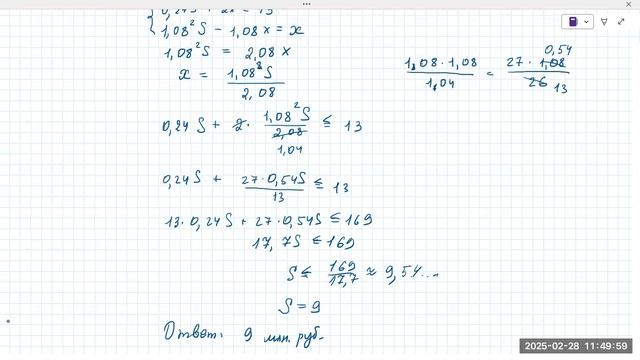 0,24S + 2x = 13
1,08²S - 1,08x = x
1,08²S = 2,08x
x = 1,08²S / 2,08
1,08 · 1,08 / 1,04 = 27 · 1,08 0,54 / 26 13
0,24S + 2 · 1,08²S / 2,08 1,04 ≤ 13
0,24S + 27·0,54S / 13 ≤ 13
13·0,24S + 27·0,54S ≤ 169
17,7S ≤ 169
S ≤ 169 / 17,7 ≈ 9,54...
S = 9
Ответ: 9 млн. руб.
2025-02-28 11:49:59